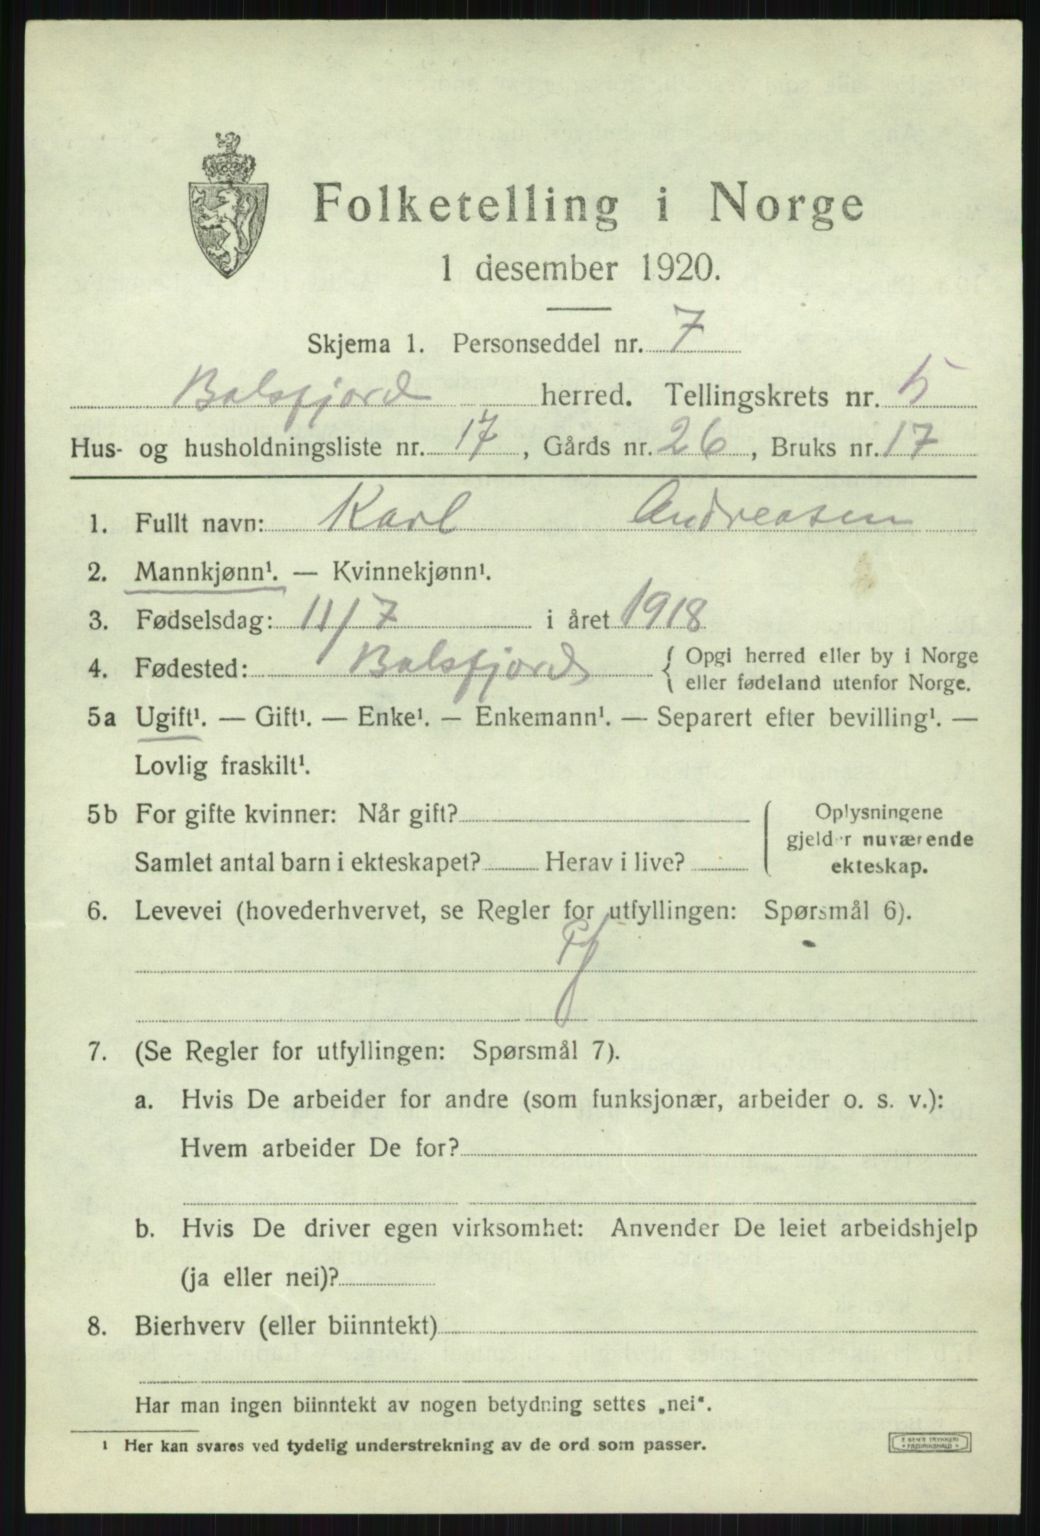 Folketelling i Norge
1 desember 1920.
Skjema 1. Personseddel nr. 7
Balsfjord herred. Tellingskrets nr. 5
Hus- og husholdningsliste nr. 17, Gårds nr. 26, Bruks nr. 17
1. Fullt navn: Karl Andreasen
2. Mannkjønn¹. — Kvinnekjønn¹.
3. Fødselsdag: 11/7 i året 1918
4. Fødested: Balsfjord { Opgi herred eller by i Norge
eller fødeland utenfor Norge.
5a Ugift¹. — Gift¹. — Enke¹. — Enkemann¹. — Separert efter bevilling¹. —
Lovlig fraskilt¹.
5b For gifte kvinner: Når gift?
Samlet antal barn i ekteskapet? Herav i live?
Oplysningene
gjelder nuværende
ekteskap.
6. Levevei (hovederhvervet, se Regler for utfyllingen: Spørsmål 6).
7. (Se Regler for utfyllingen: Spørsmål 7).
a. Hvis De arbeider for andre (som funksjonær, arbeider o. s. v.):
Hvem arbeider De for?
b. Hvis De driver egen virksomhet: Anvender De leiet arbeidshjelp
(ja eller nei)?
8. Bierhverv (eller biinntekt)
Har man ingen biinntekt av nogen betydning settes „nei“.
¹ Her kan svares ved tydelig understrekning av de ord som passer.